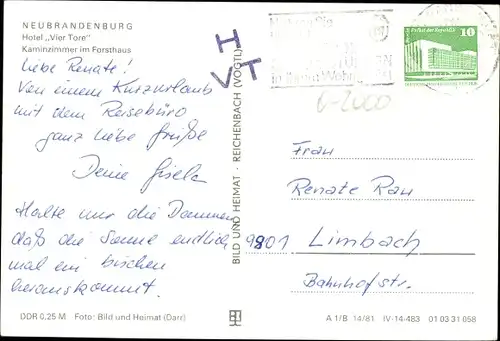 NEUBRANDENBURG
Hotel „Vier Tore"
Kaminzimmer im Forsthaus
Liebe Renate!
Von einem Kurzurlaub
mit dem Reisebüro
ganz liebe Grüße
Deine Gisela
Halte mir die Daumen,
daß die Sonne endlich
mal ein bischen
herauskommt.
DDR 0,25 M Foto: Bild und Heimat (Darr)
BILD UND HEIMAT · REICHENBACH (VOGTL)
H
V T
10
Palast der Republik
6-2000
Frau
Renate Rau
9801 Limbach
Bahnhofstr.
A 1/B 14/81 IV-14-483 01 03 31 058